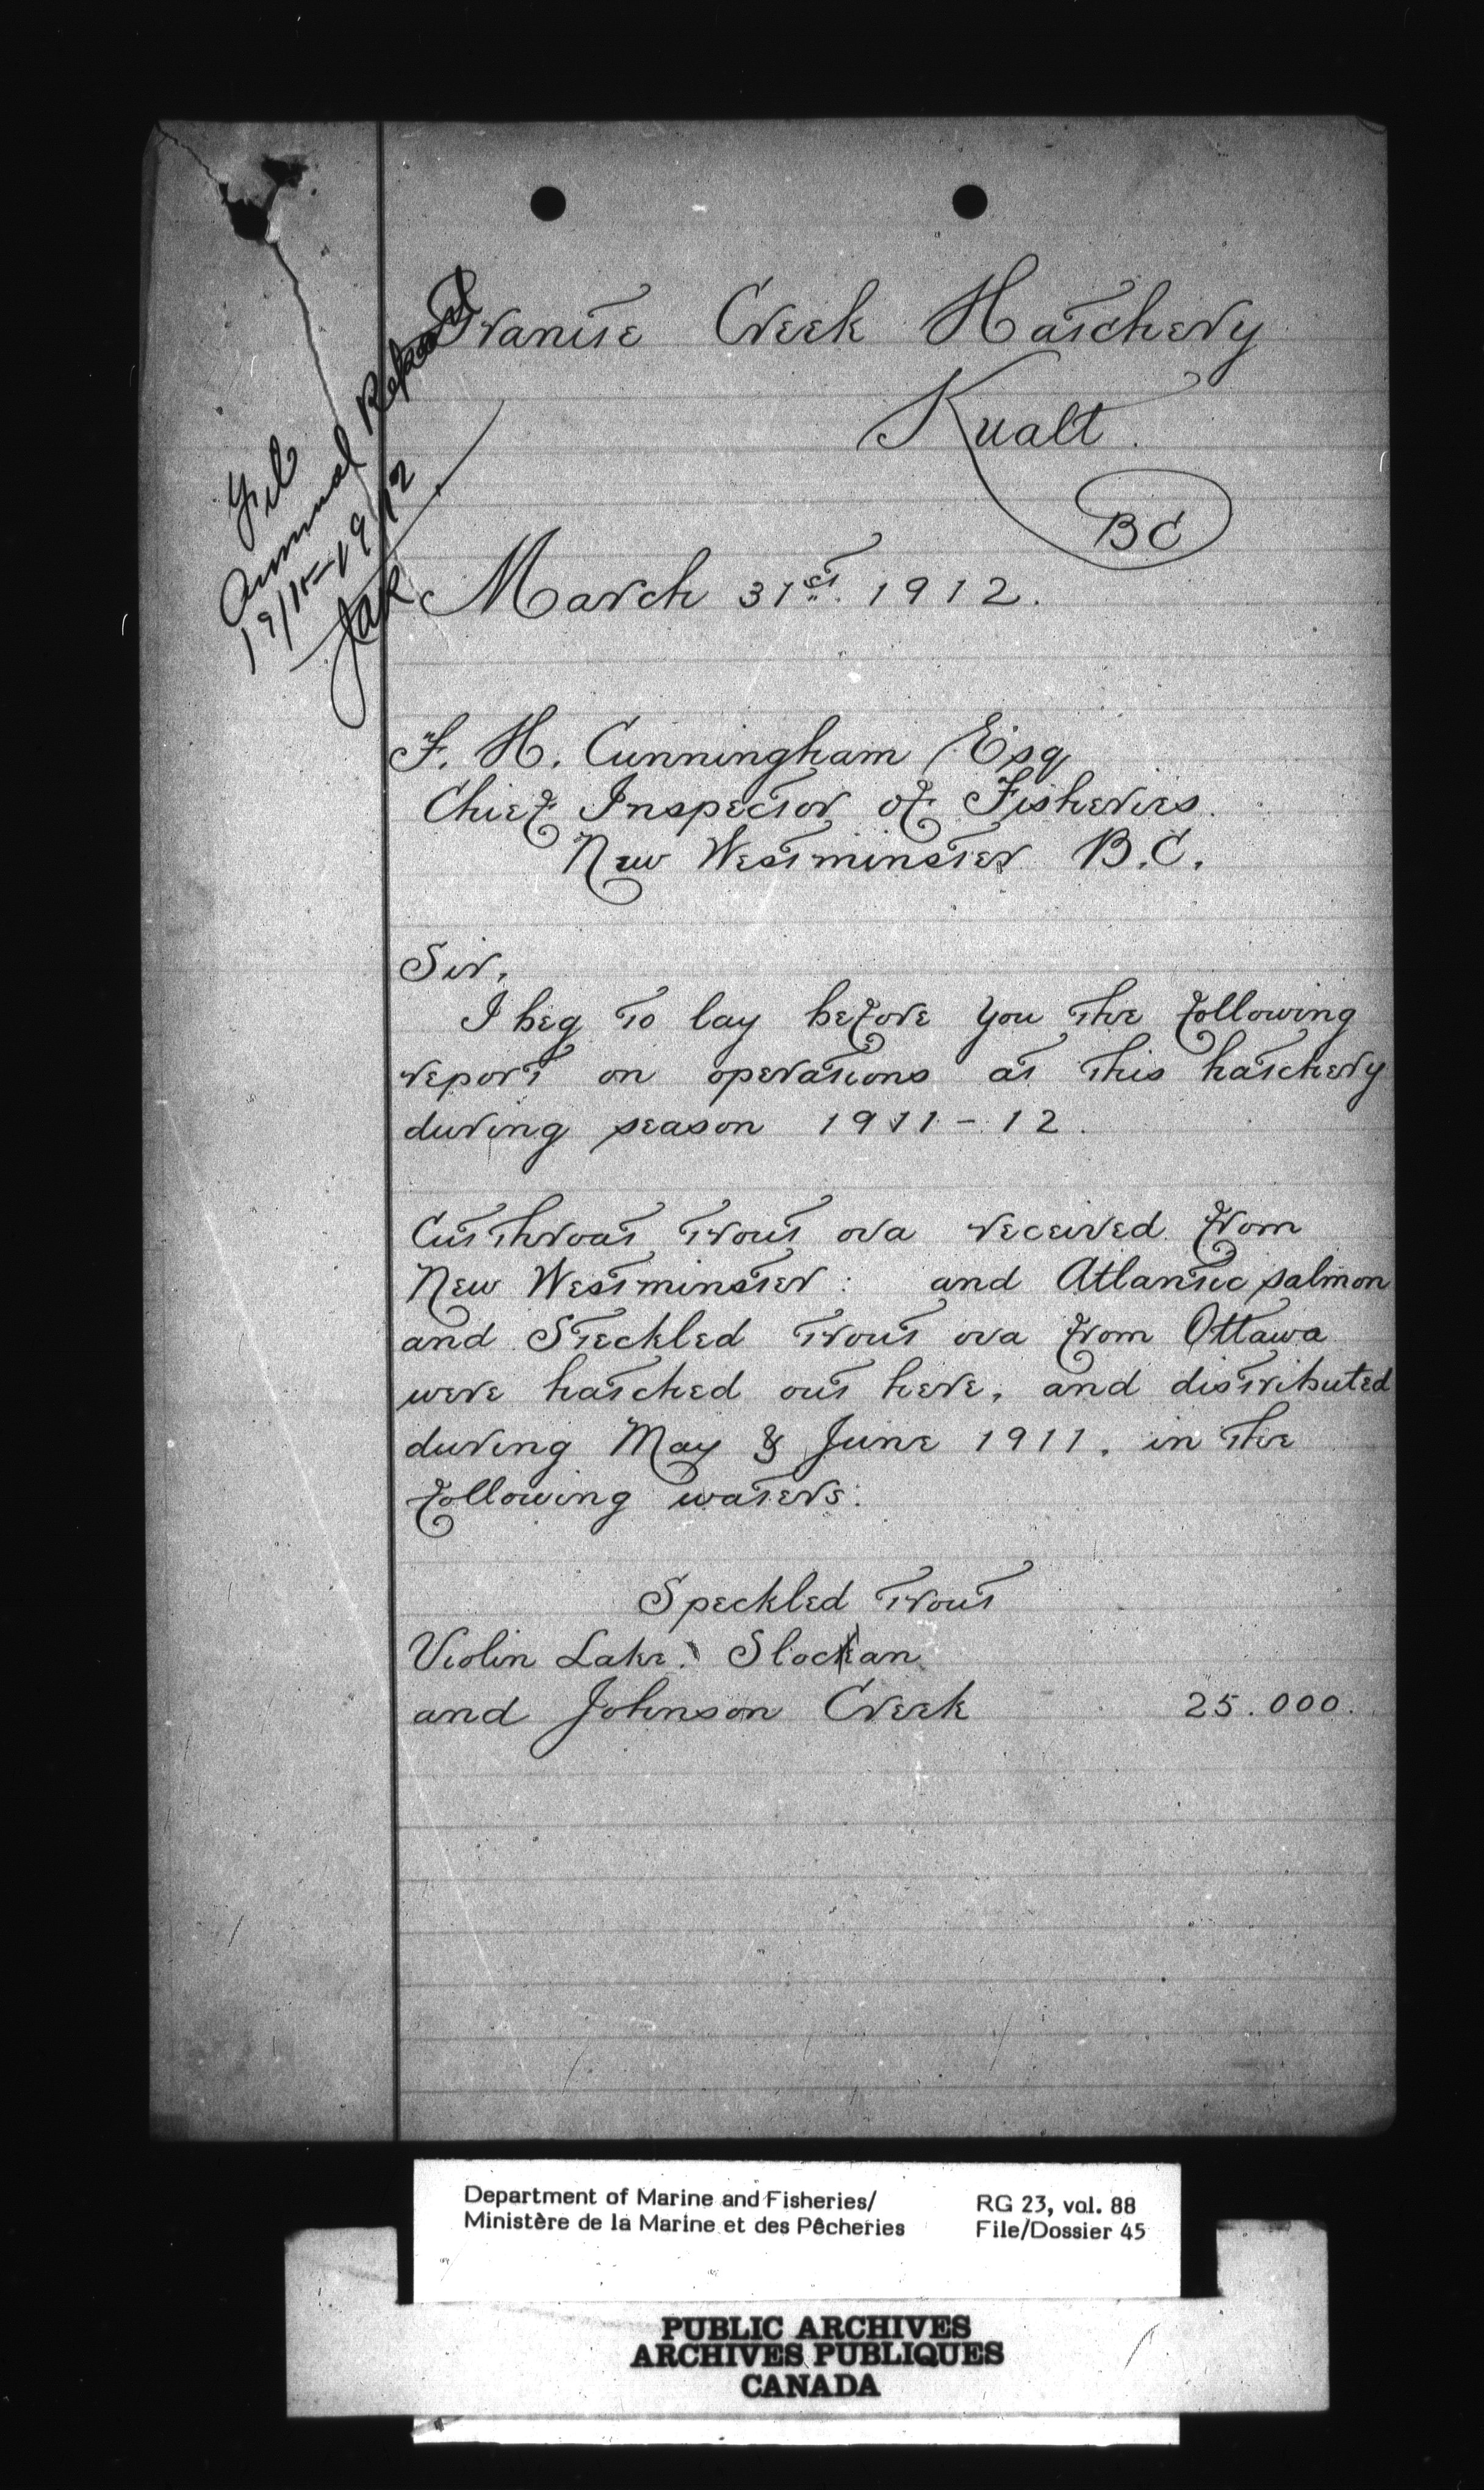 Granite Creek Hatchery
Kualt.
BC
March 31st. 1912.
Annual Report
1911-1912
F. H. Cunningham Esq
Chief Inspector of Fisheries.
New Westminster B.C.
Sir,
I beg to lay before you the following
report on operations at this hatchery
during season 1911-12.
Cutthroat trout ova received from
New Westminster: and Atlantic salmon
and Speckled trout ova from Ottawa
were hatched out here, and distributed
during May & June 1911, in the
following waters:
Speckled trout
Violin Lake. Slocan
and Johnson Creek 25.000.
Department of Marine and Fisheries/
Ministère de la Marine et des Pêcheries
RG 23, vol. 88
File/Dossier 45
PUBLIC ARCHIVES
ARCHIVES PUBLIQUES
CANADA